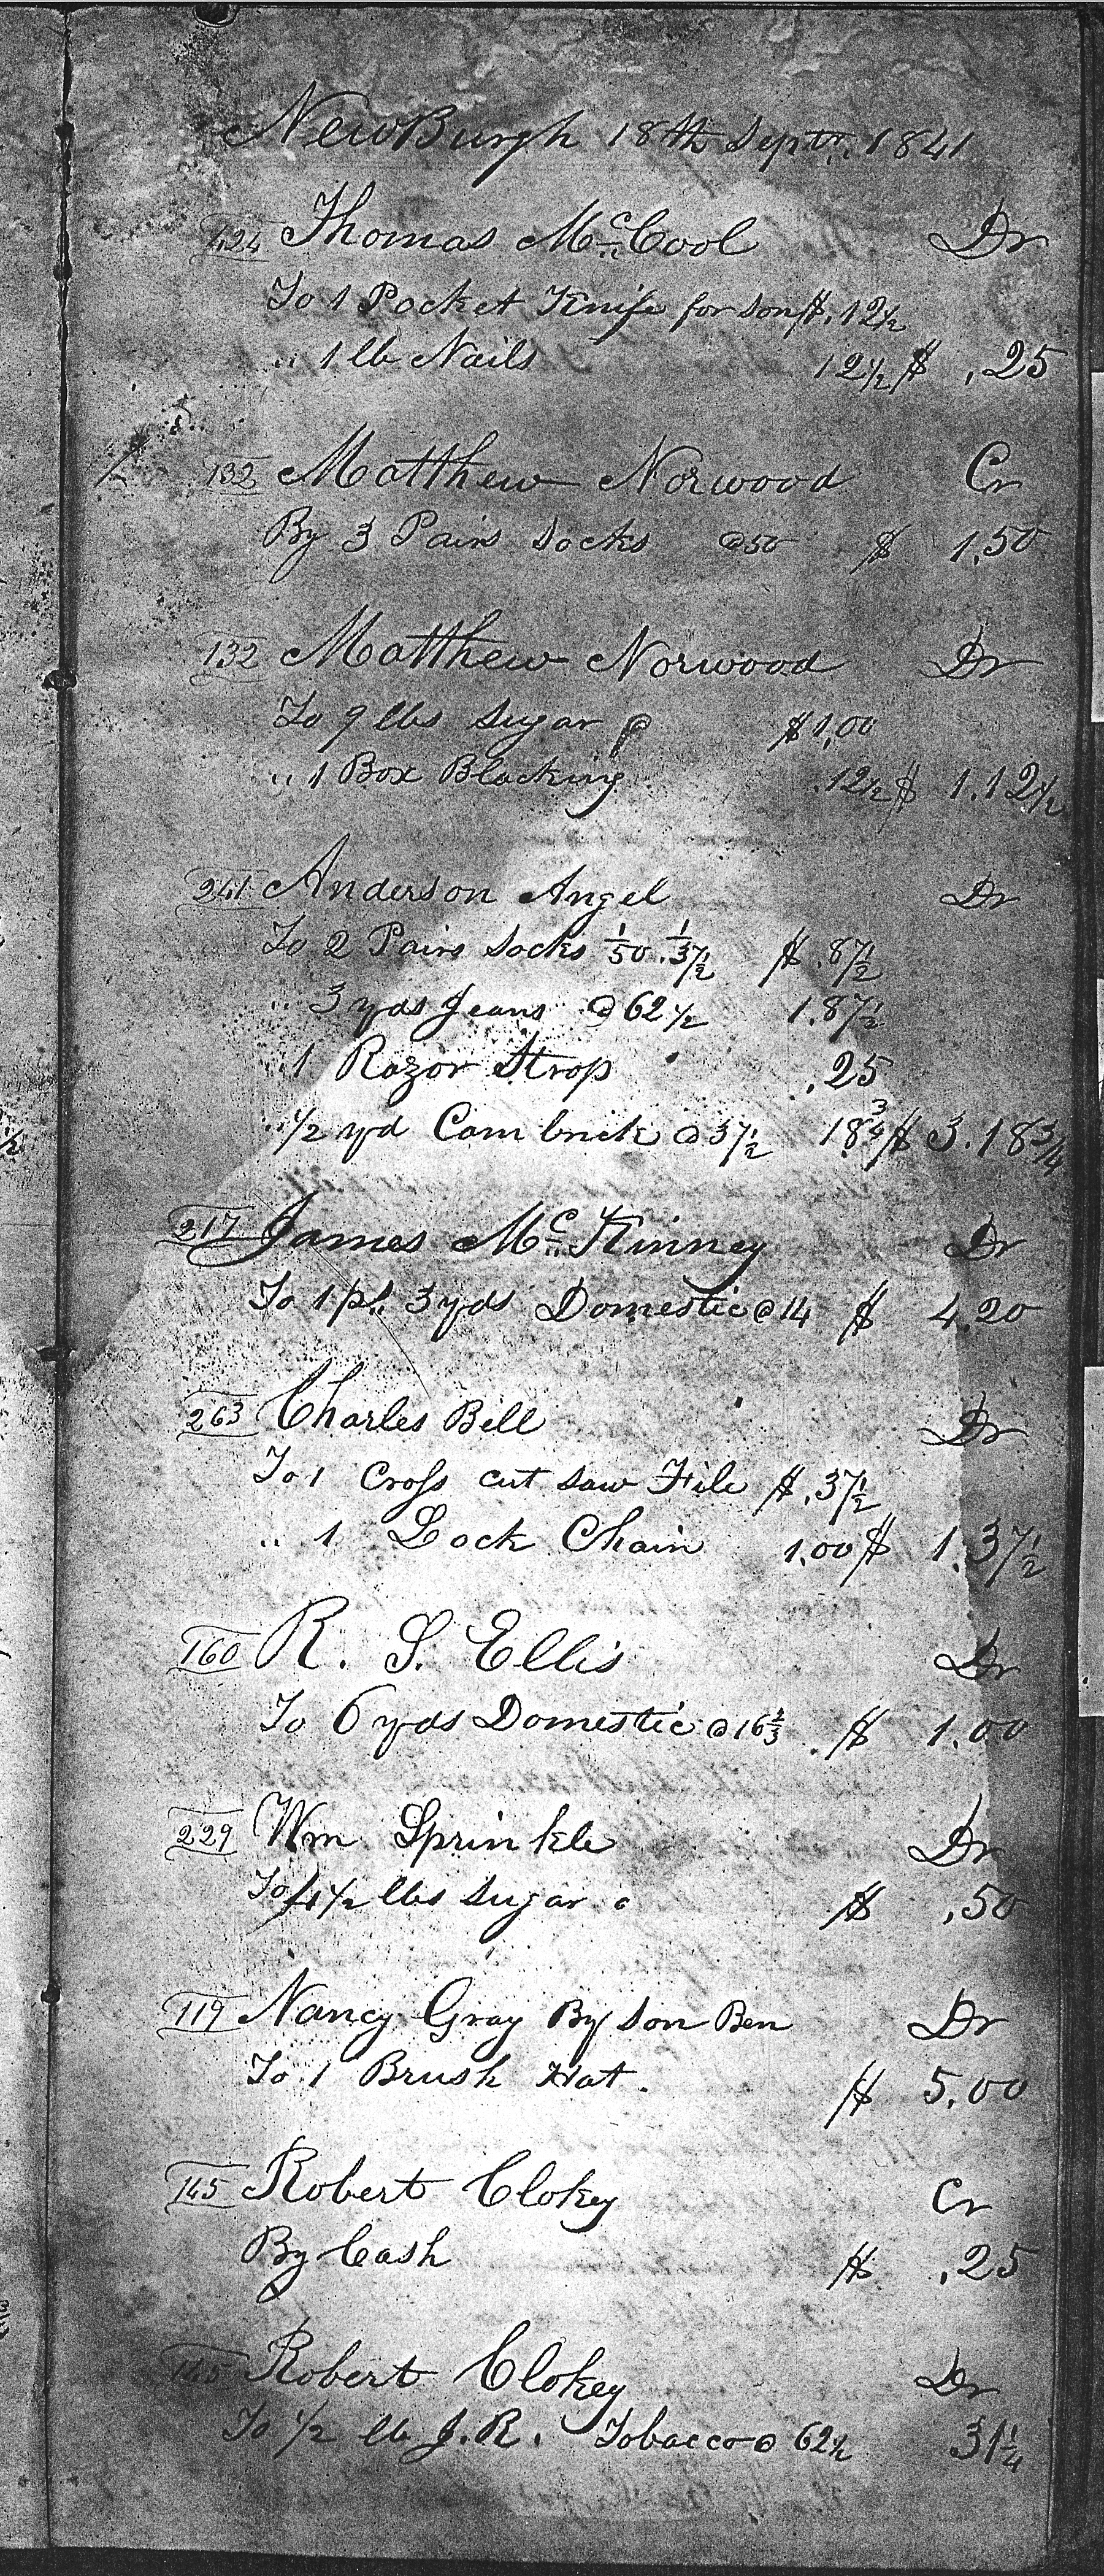 NewBurgh 18th Septr. 1841
124 Thomas McCool Dr
To 1 Pocket Knife for son $.12½
" 1 lb Nails 12½ $ .25
132 Matthew Norwood Cr
By 3 Pairs Socks @50 $ 1.50
132 Matthew Norwood Dr
To 9 lbs Sugar $1.00
" 1 Box Blacking .12½ $ 1.12½
241 Anderson Angel Dr
To 2 Pairs Socks 1/50 . 1/37½ $ .87½
" 3 yds Jeans @ 62½ 1.87½
" 1 Razor Strop .25
" ½ yd Cambrick @ 37½ 18¾ $ 3.18¾
217 James McKinney Dr
To 1 ps. 3 yds Domestic @ 14 $ 4.20
263 Charles Bell Dr
To 1 Cross cut saw File $ .37½
" 1 Lock Chain 1.00 $ 1.37½
160 R. S. Ellis Dr
To 6 yds Domestic @ 16⅔ $ 1.00
229 Wm Sprinkle Dr
To 4½ lbs Sugar $ .50
119 Nancy Gray By son Ben Dr
To 1 Brush Hat. $ 5.00
145 Robert Clokey Cr
By Cash $ .25
145 Robert Clokey Dr
To ½ lb J.R. Tobacco @ 62½ 31¼